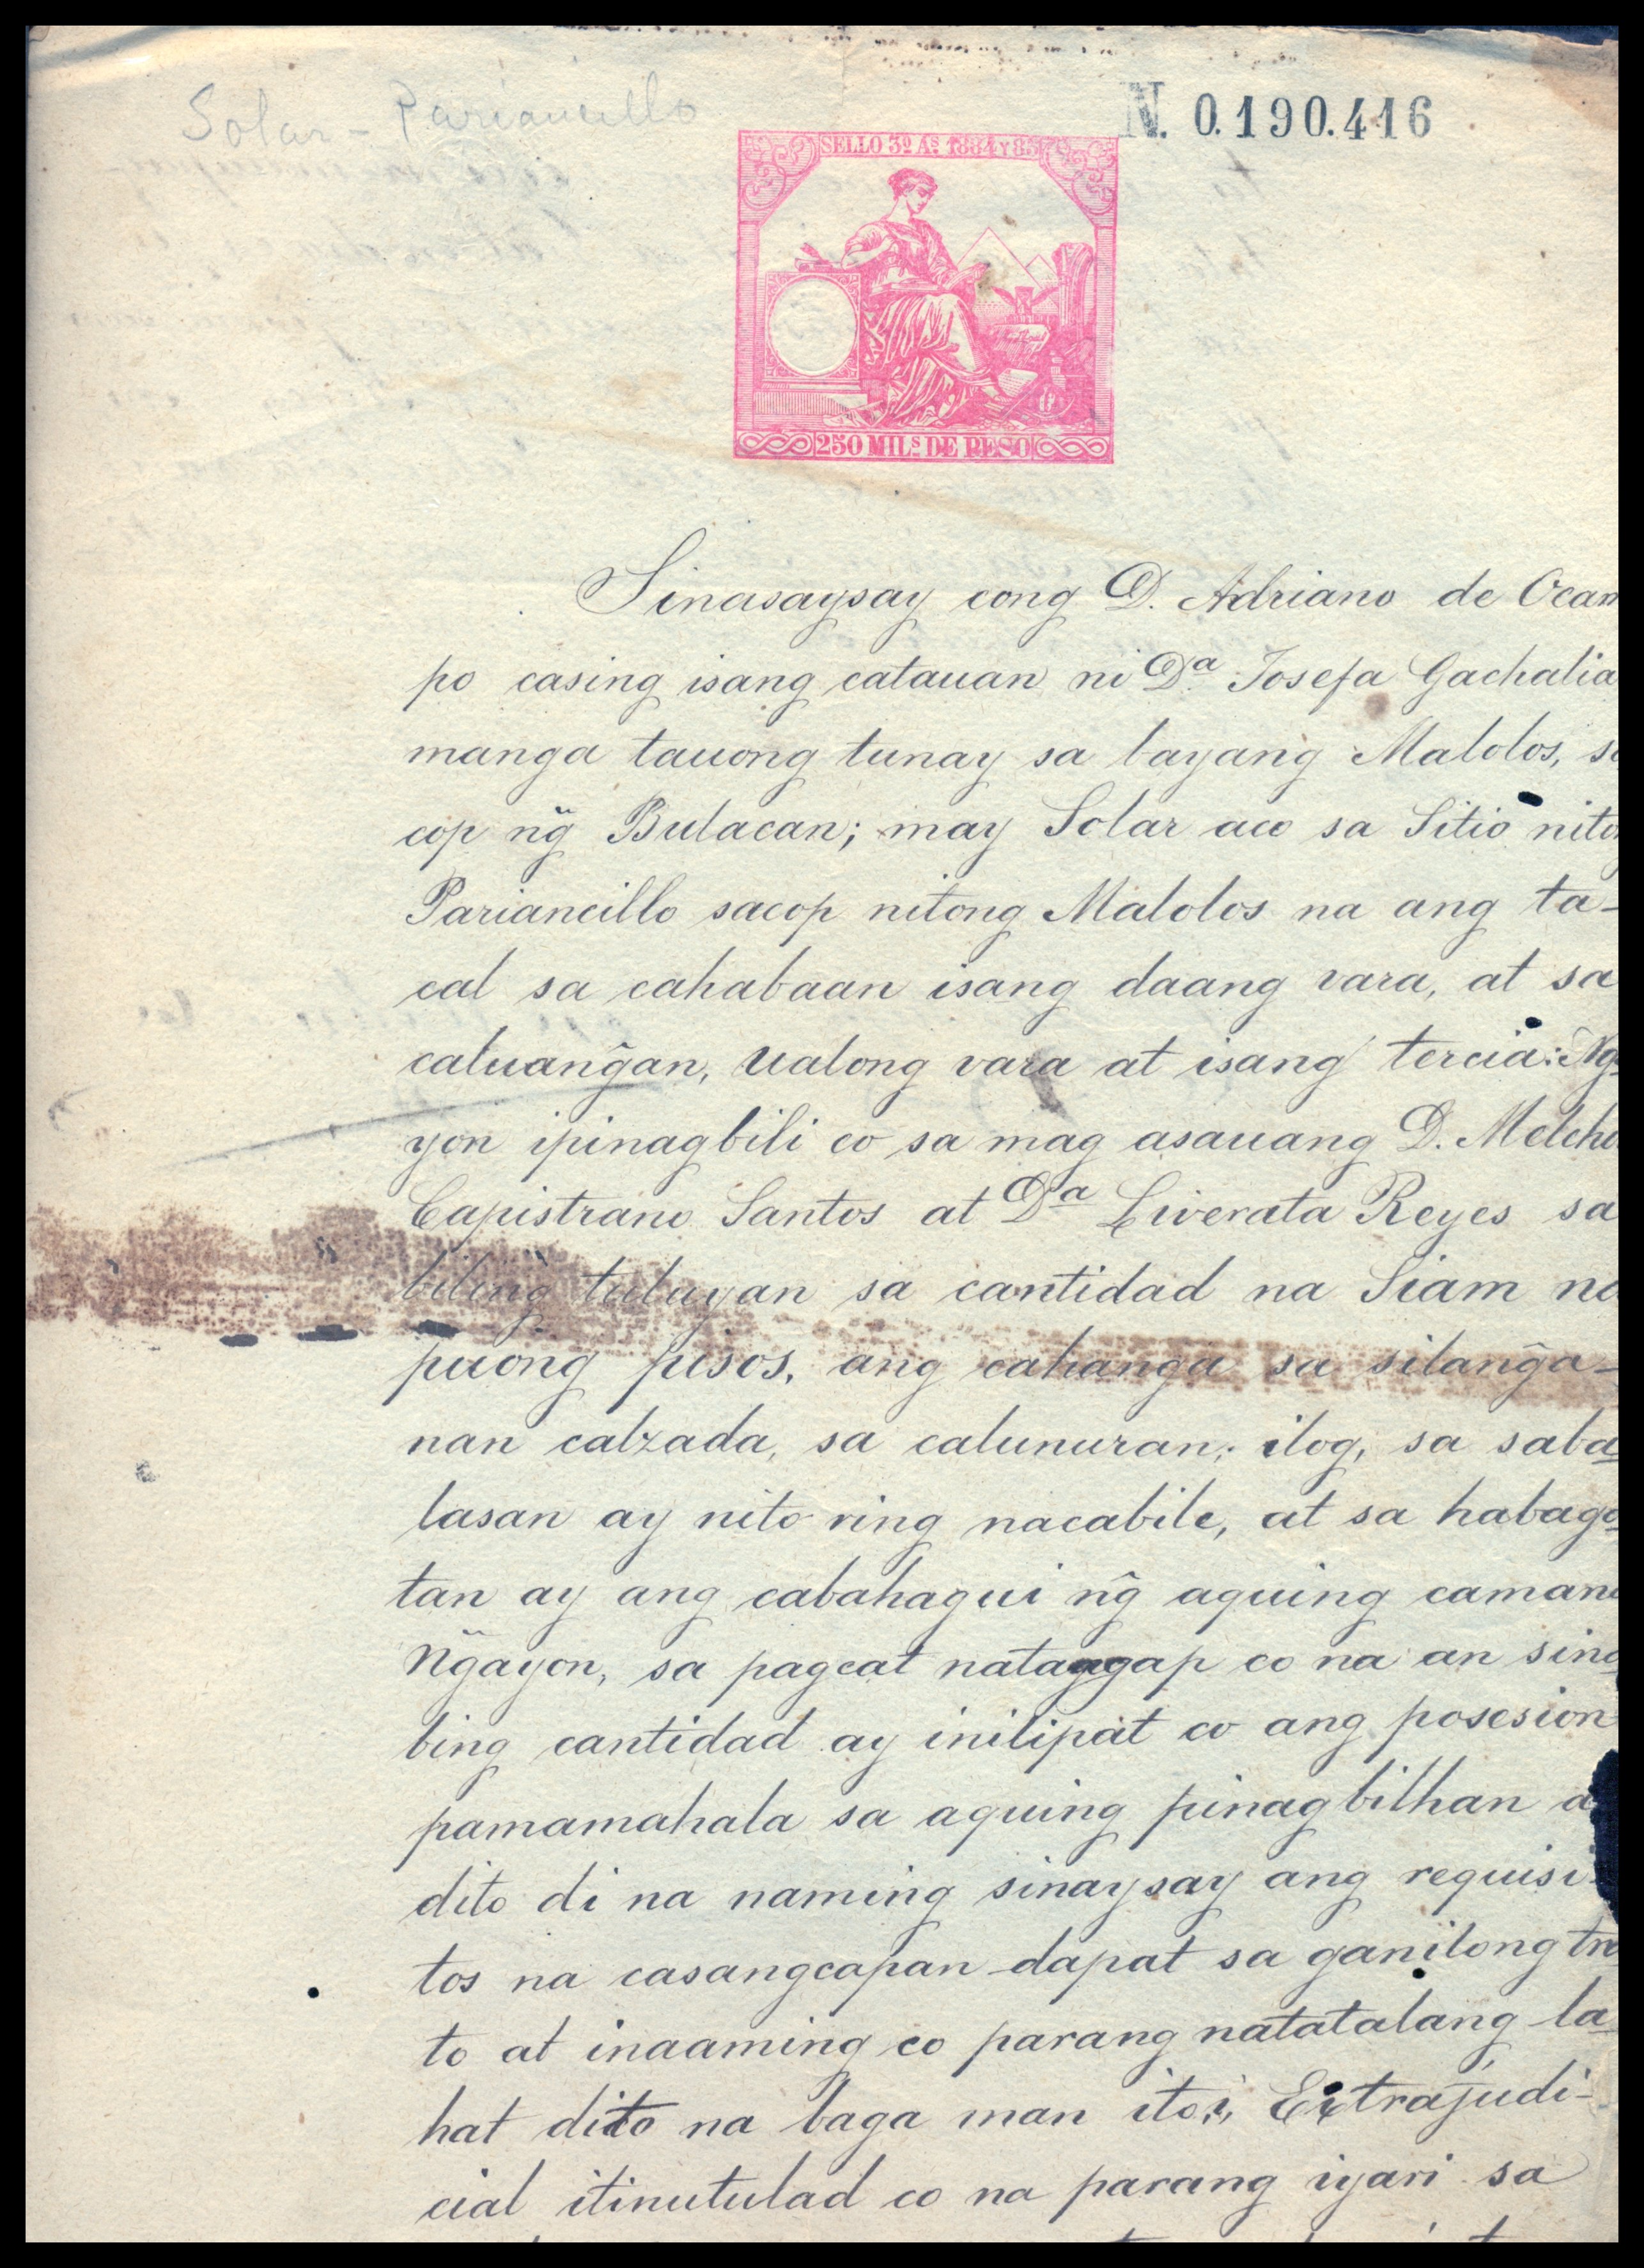 Solar - Pariancillo
N. 0.190.416
SELLO 3º As. 1884 Y 85
250 MILS. DE PESO
Sinasaysay cong D. Adriano de Ocam
po casing isang catauan ni Da. Josefa Gachalia
manga tauong tunay sa bayang Malolos, sa
cop ng̃ Bulacan; may Solar aco sa Sitio nitong
Pariancillo sacop nitong Malolos na ang ta-
cal sa cahabaan isang daang vara, at sa
caluang̃an, ualong vara at isang tercia: Ng
yon ipinagbili co sa mag asauang D. Melcho
Capistrano Santos at Da Liverata Reyes sa
biling tuluyan sa cantidad na Siam na
puong pisos, ang cahanga sa silang̃a-
nan calzada, sa calunuran; ilog, sa saba
lasan ay nito ring nacabile, at sa habaga
tan ay ang cabahagui ng̃ aquing camana
Ng̃ayon, sa pagcat natanggap co na an sina
bing cantidad ay inilipat co ang posesion
pamamahala sa aquing pinagbilhan a
dito di na naming sinaysay ang requisi-
tos na casangcapan dapat sa ganitong tra
to at inaaming co parang natatalang la
hat dito na baga man ito,i, Extrajudi-
cial itinutulad co na parang iyari sa